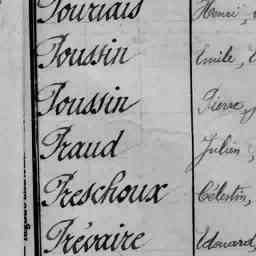 Pourias Henri,
Poussin Emile,
Poussin Pierre,
Praud Julien,
Preschoux Célestin,
Prévaire Edouard,